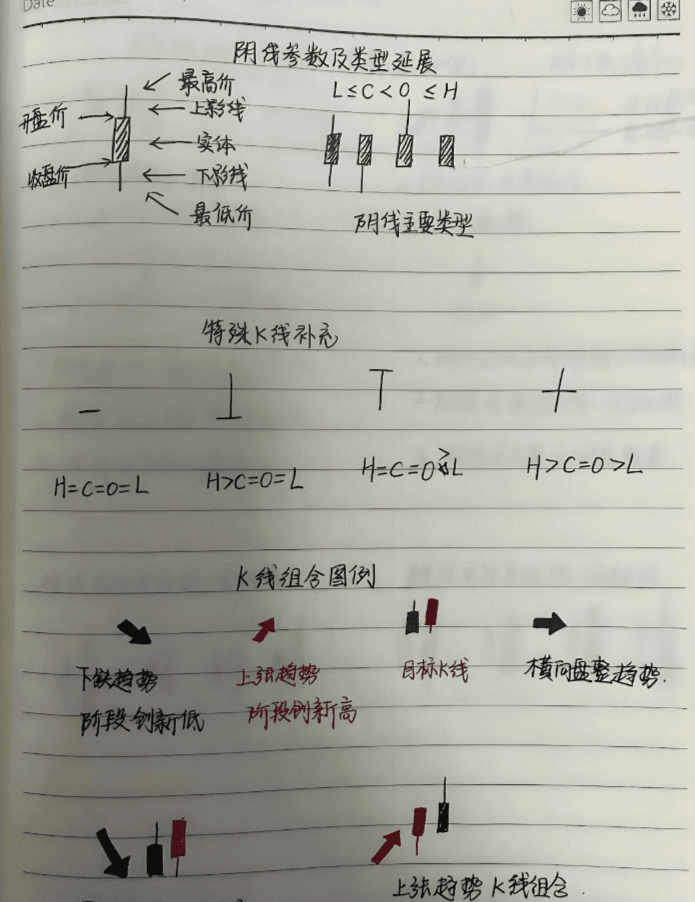 Date
阴线参数及类型延展
最高价
L≤C<O≤H
上影线
开盘价
实体
收盘价
下影线
最低价
阴线主要类型
特殊K线补充
H=C=O=L
H>C=O=L
H=C=O>L
H>C=O>L
K线组合图例
下跌趋势
上涨趋势
目标K线
横向盘整趋势.
阶段创新低
阶段创新高
上涨趋势K线组合.